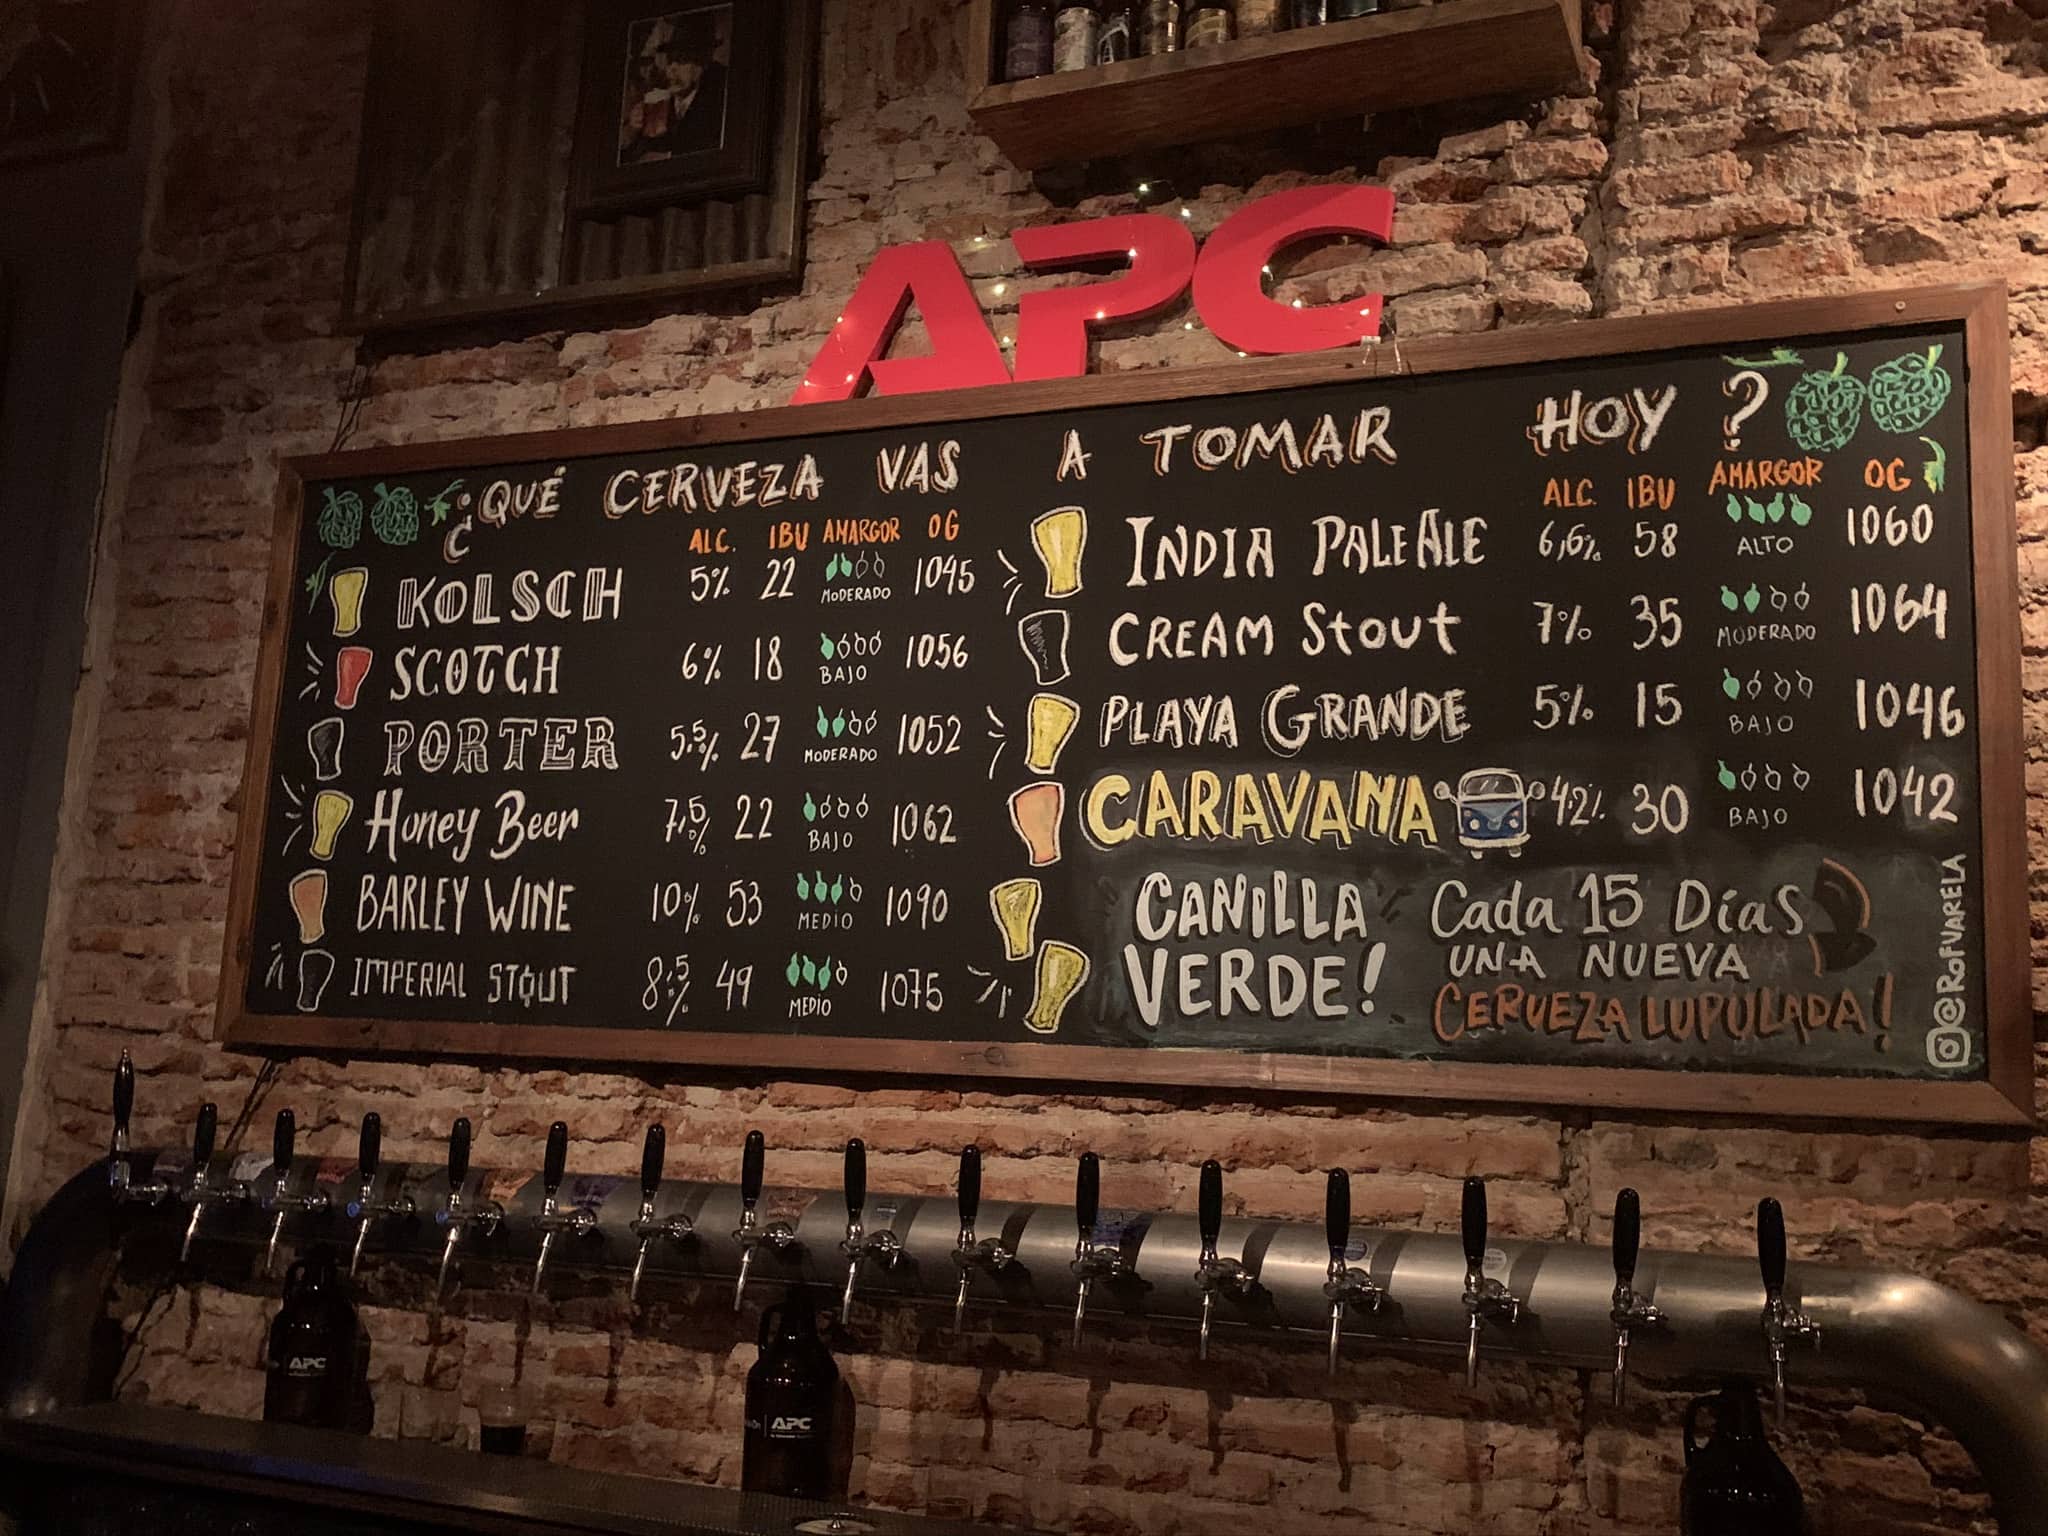 APC
¿QUÉ CERVEZA VAS A TOMAR HOY?
ALC. IBU AMARGOR OG
KOLSCH 5% 22 MODERADO 1045
SCOTCH 6% 18 BAJO 1056
PORTER 5,5% 27 MODERADO 1052
Honey Beer 7,5% 22 BAJO 1062
BARLEY WINE 10% 53 MEDIO 1090
IMPERIAL STOUT 8,5% 49 MEDIO 1075
ALC. IBU AMARGOR OG
INDIA PALE ALE 6,6% 58 ALTO 1060
CREAM Stout 7% 35 MODERADO 1064
PLAYA GRANDE 5% 15 BAJO 1046
CARAVANA 4.2% 30 BAJO 1042
CANILLA
VERDE!
Cada 15 Días
UNA NUEVA
CERVEZA LUPULADA!
@ROFUARELA
APC
APC